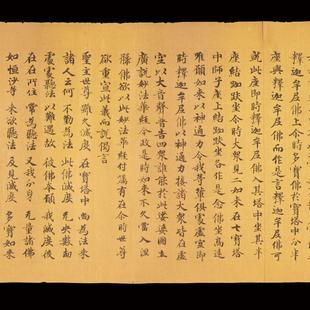 釋迦牟尼佛上尒時多寶佛於寶塔中分半
座與釋迦牟尼佛而作是言釋迦牟尼佛可
就此座即時釋迦牟尼佛入其塔中坐其半
座結跏趺坐尒時大衆見二如來在七寶塔
中師子座上結跏趺坐各作是念佛坐高遠
唯願如來以神通力令我等輩俱處虛空即
時釋迦牟尼佛以神通力接諸大衆皆在虛
空以大音聲普告四衆誰能於此娑婆國土
廣說妙法華經今正是時如來不久當入涅
槃佛欲以此妙法華經付囑有在尒時世尊
欲重宣此義而說偈言
聖主世尊 雖久滅度 在寶塔中 尚爲法來
諸人云何 不勤爲法 此佛滅度 无央數劫
處處聽法 以難遇故 彼佛本願 我滅度後
在在所往 常爲聽法 又我分身 无量諸佛
如恒沙等 來欲聽法 及見滅度 多寶如來